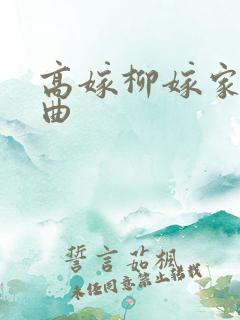 高嫁柳嫁家
曲
誓言茹枫
未经同意禁止转载